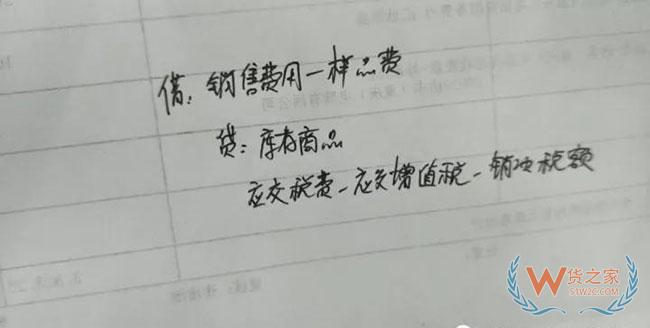 借：销售费用—样品费
贷：库存商品
应交税费—应交增值税—销项税额
W货之家
51W2C.COM